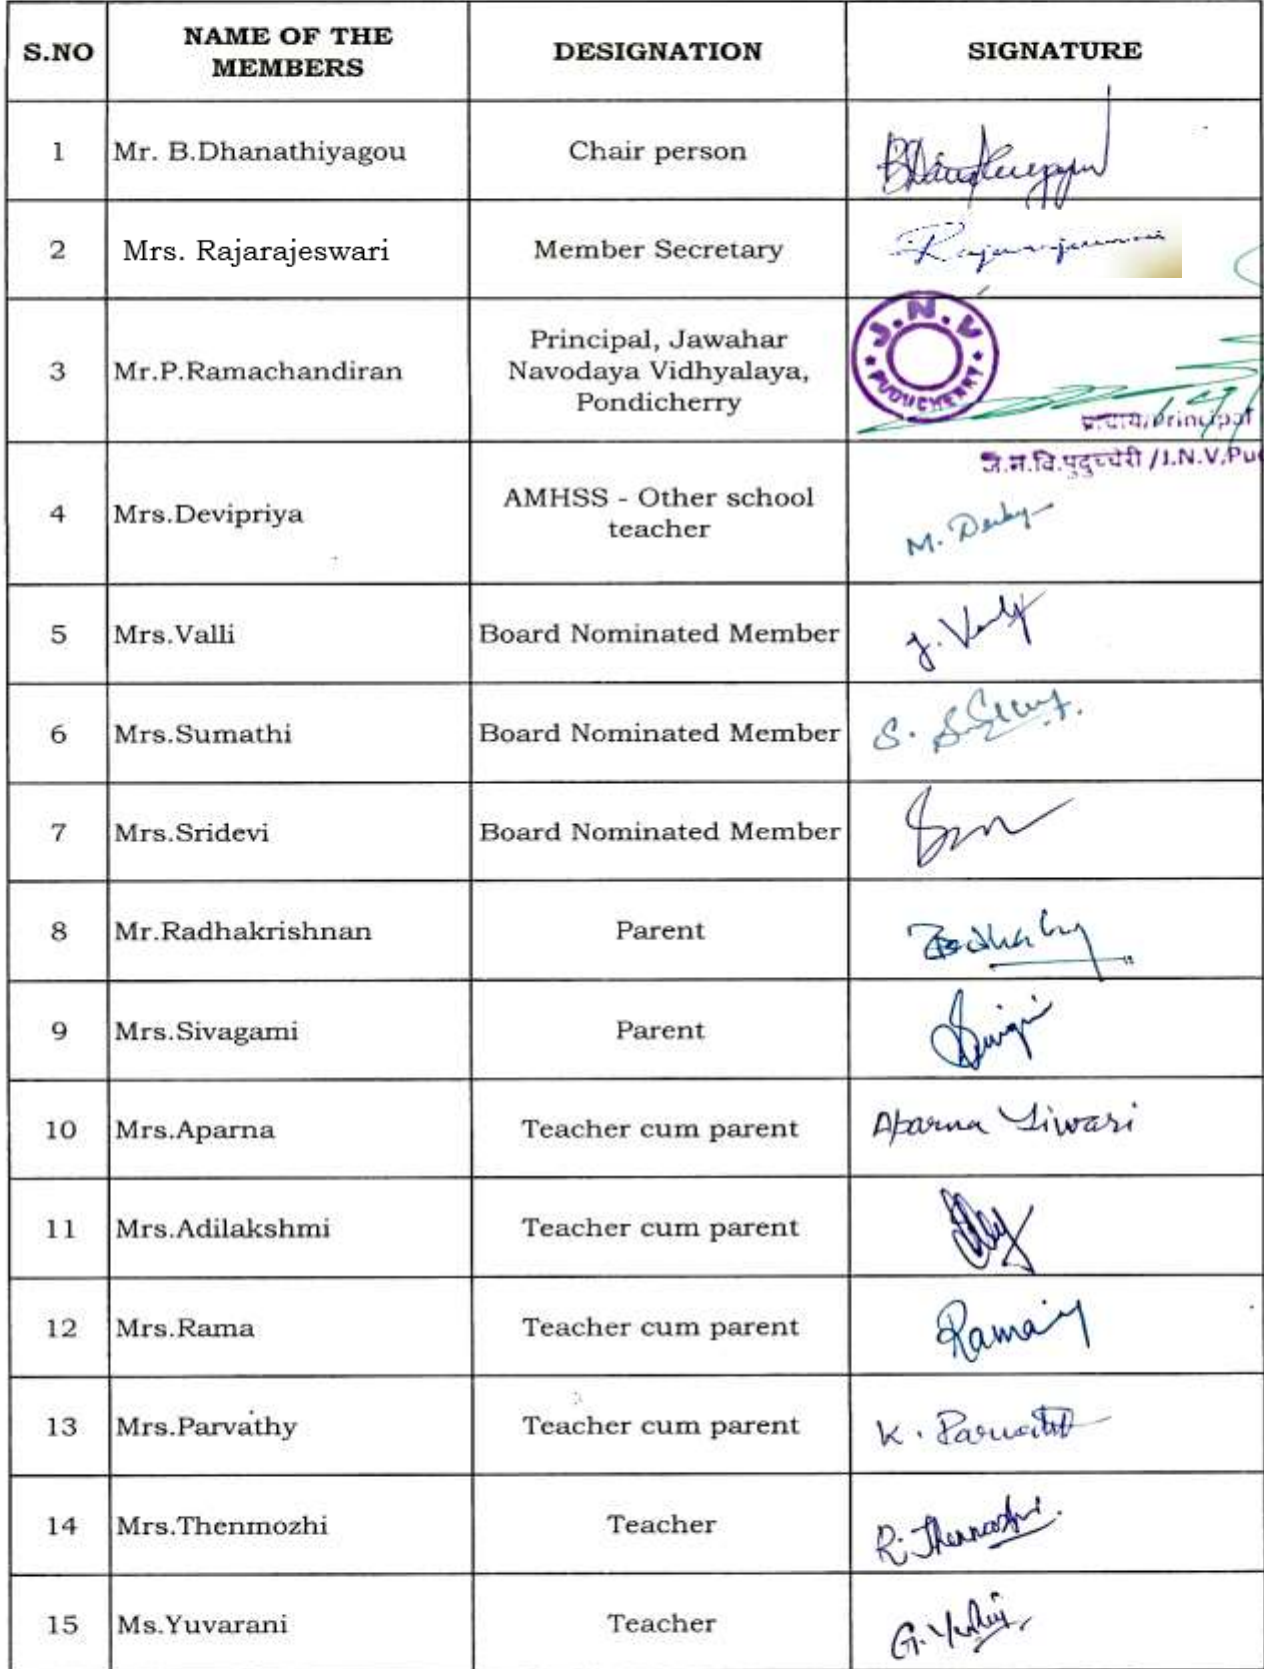 S.NO NAME OF THE MEMBERS DESIGNATION SIGNATURE
1 Mr. B.Dhanathiyagou Chair person
2 Mrs. Rajarajeswari Member Secretary
3 Mr.P.Ramachandiran Principal, Jawahar Navodaya Vidhyalaya, Pondicherry
J.N.V
PUDUCHERRY
प्राचार्य/Principal
ज.न.वि.पुदुच्चेरी /J.N.V,Pu
4 Mrs.Devipriya AMHSS - Other school teacher
5 Mrs.Valli Board Nominated Member
6 Mrs.Sumathi Board Nominated Member
7 Mrs.Sridevi Board Nominated Member
8 Mr.Radhakrishnan Parent
9 Mrs.Sivagami Parent
10 Mrs.Aparna Teacher cum parent Aparna Tiwari
11 Mrs.Adilakshmi Teacher cum parent
12 Mrs.Rama Teacher cum parent
13 Mrs.Parvathy Teacher cum parent
14 Mrs.Thenmozhi Teacher
15 Ms.Yuvarani Teacher